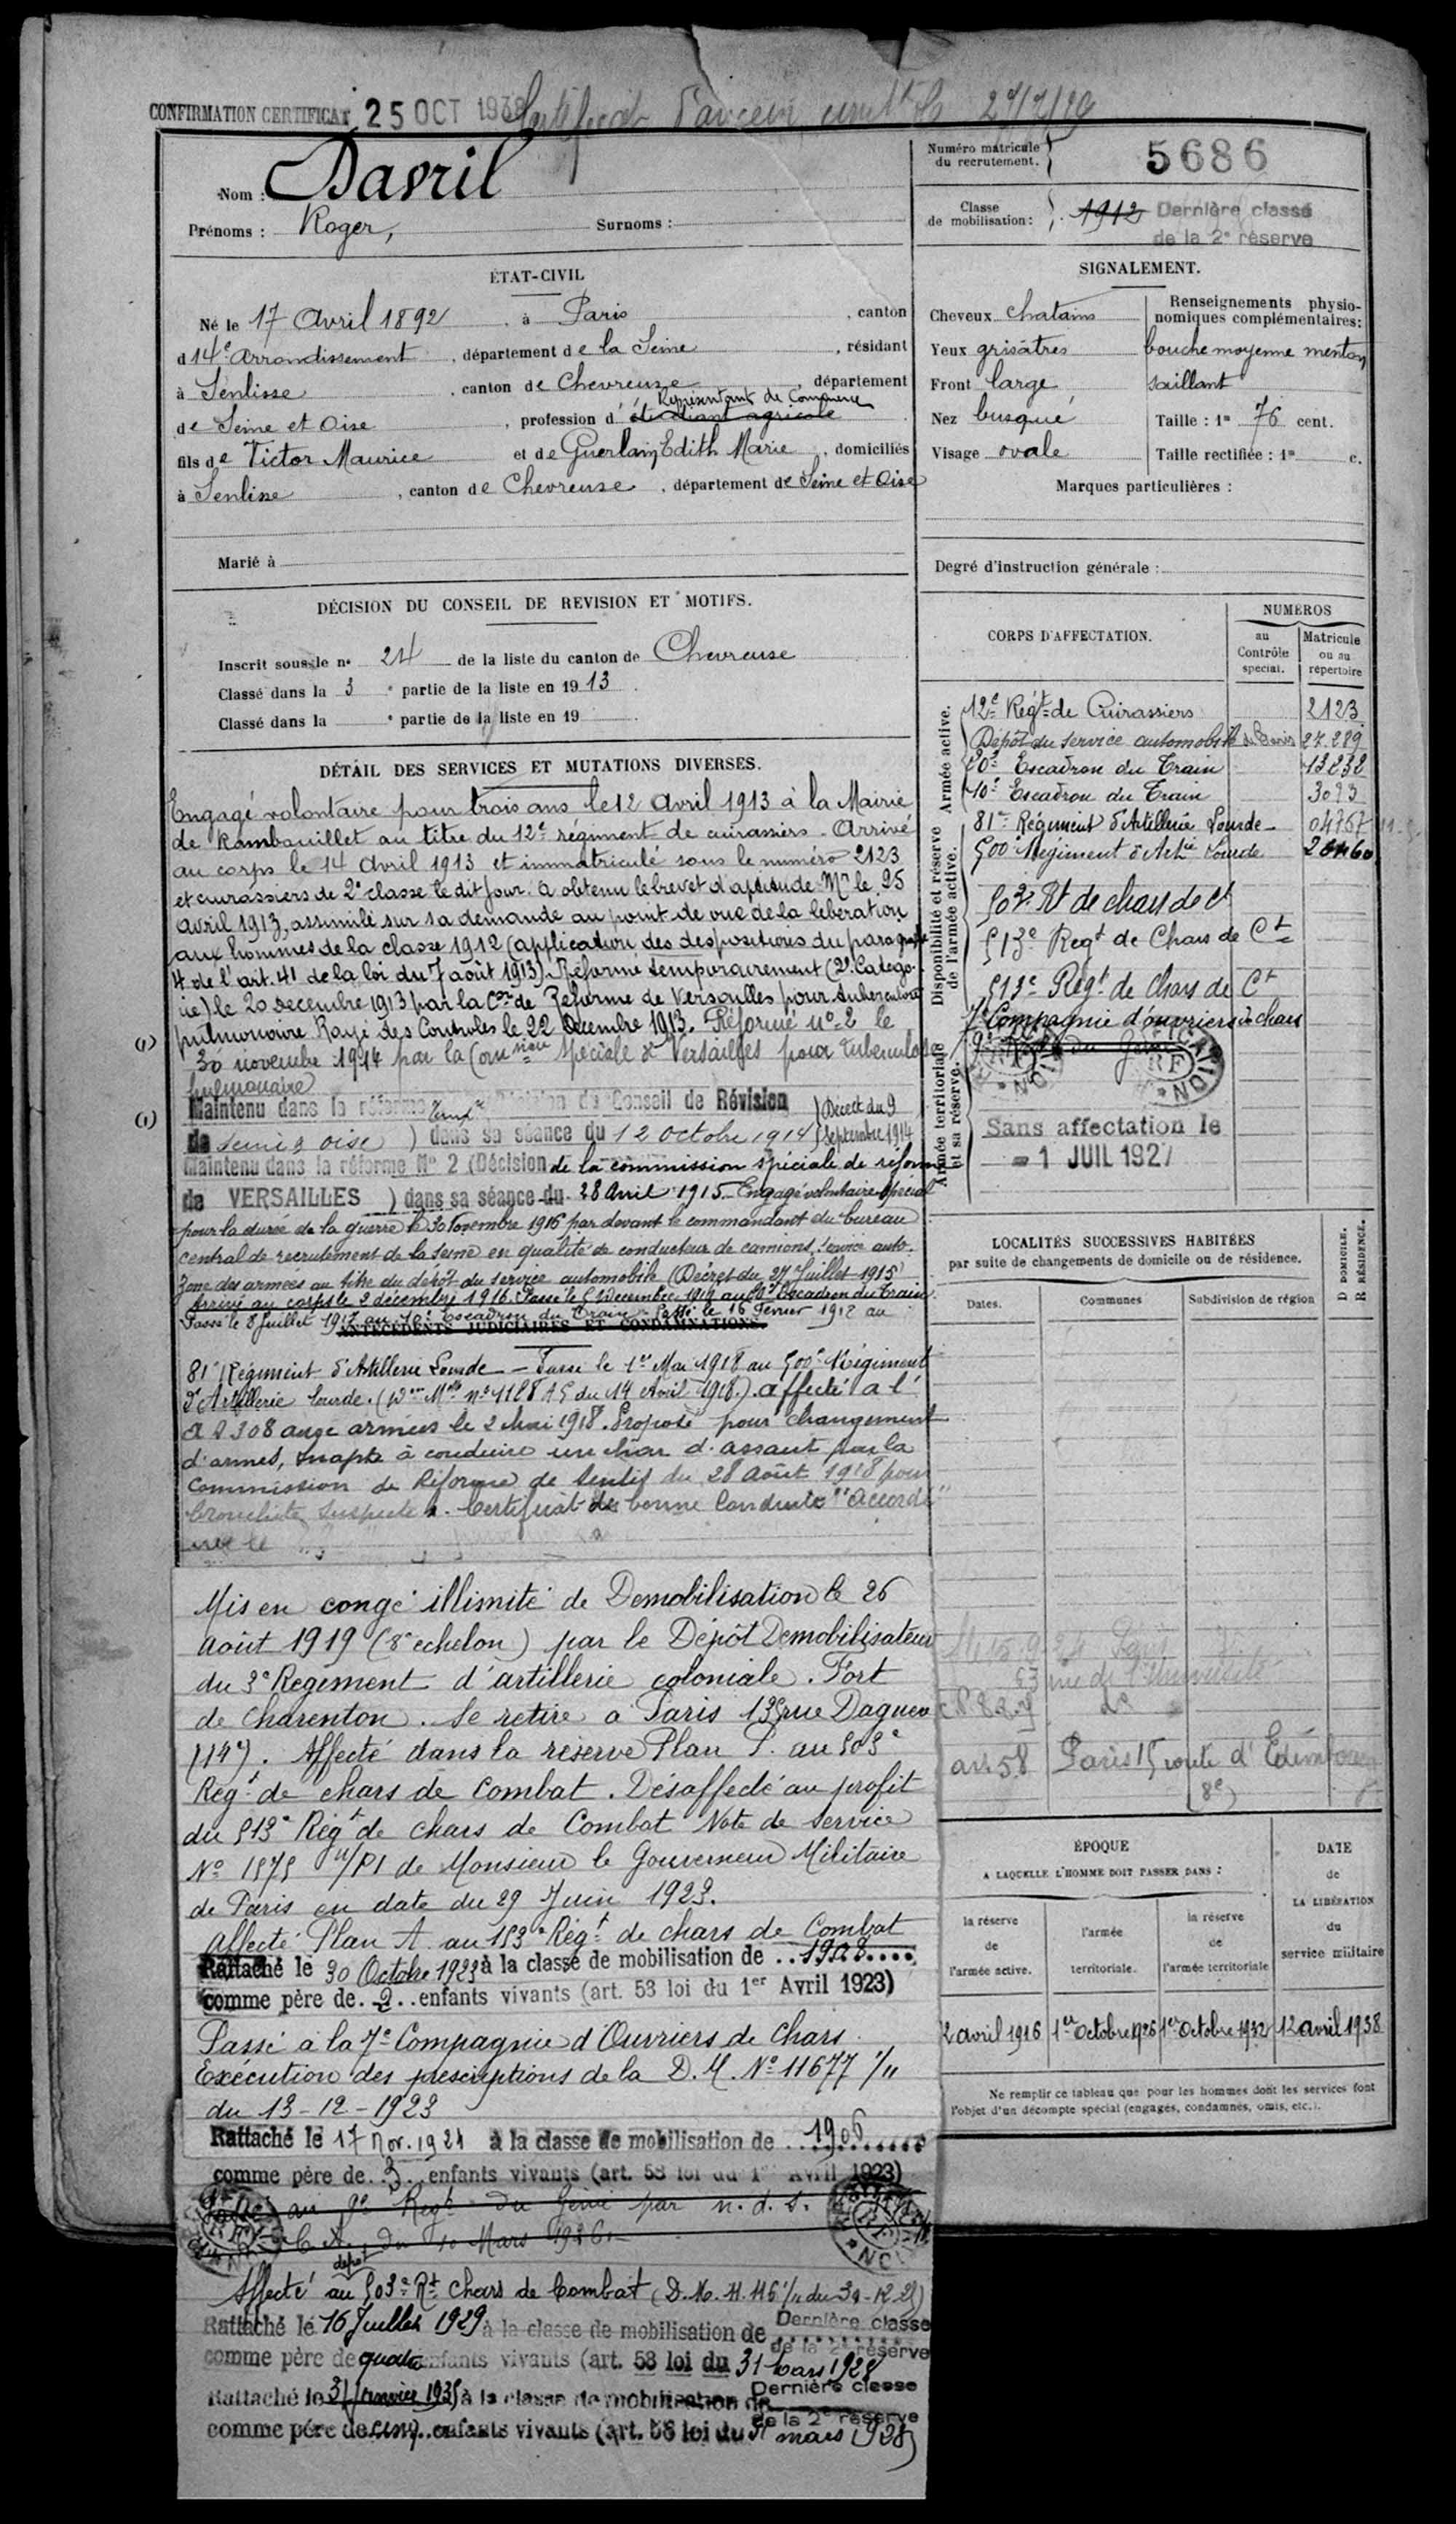 CONFIRMATION CERTIFICAT 25 OCT 1938
Nom : Davril
Prénoms : Roger, Surnoms :
Numéro matricule du recrutement. 5686
Classe de mobilisation : 1912 Dernière classe
de la 2e réserve
ÉTAT-CIVIL
Né le 17 Avril 1892, à Paris, canton
d 14e arrondissement, département de la Seine, résidant
à Senlisse, canton de Chevreuse, département
Représentant de Commerce
de Seine et Oise, profession d'étudiant agricole
fils de Victor Maurice et de Guerlain Edith Marie, domiciliés
à Senlisse, canton de Chevreuse, département de Seine et Oise
Marié à
SIGNALEMENT.
Cheveux chatains
Yeux grisâtres
Front large
Nez busqué
Visage ovale
Renseignements physionomiques complémentaires :
bouche moyenne menton
saillant
Taille : 1m 76 cent.
Taille rectifiée : 1m c.
Marques particulières :
Degré d'instruction générale :
DÉCISION DU CONSEIL DE REVISION ET MOTIFS.
Inscrit sous le n° 24 de la liste du canton de Chevreuse
Classé dans la 3e partie de la liste en 1913
Classé dans la e partie de la liste en 19
DÉTAIL DES SERVICES ET MUTATIONS DIVERSES.
Engagé volontaire pour trois ans le 12 Avril 1913 à la Mairie
de Rambouillet au titre du 12e régiment de cuirassiers. Arrivé
au corps le 14 Avril 1913 et immatriculé sous le numéro 2123
et cuirassiers de 2e classe le dit jour. A obtenu le brevet d'aptitude Mre le 25
avril 1913, assimilé sur sa demande au point de vue de la libération
aux hommes de la classe 1912 (application des dispositions du paragraphe
4 de l'art. 41 de la loi du 7 août 1913). Réformé temporairement (2e Catégorie) le 20 décembre 1913 par la Con de Réforme de Versailles pour tuberculose
pulmonaire Rayé des Controles le 22 Décembre 1913. Réformé n° 2 le
(1) 30 novembre 1914 par la Commission spéciale de Versailles pour tuberculose
pulmonaire
(1) Maintenu dans la réforme Décision du Conseil de Révision } Décret du 9
de Seine & Oise ) dans sa séance du 12 octobre 1914 } Septembre 1914
Maintenu dans la réforme N° 2 (Décision de la commission spéciale de réforme
de VERSAILLES ) dans sa séance du 28 Avril 1915. Engagé volontaire spécial
pour la durée de la guerre le 30 Novembre 1916 par devant le commandant du bureau
central de recrutement de la Seine en qualité de conducteur de camions, service auto.
Zone des armées au titre du dépôt du service automobile (Décret du 27 Juillet 1915)
Arrivé au corps le 2 décembre 1916. Passé le Décembre au 20e Escadron du Train.
Passé le 8 Juillet 1917 au 10e Escadron du Train. Passé le 16 Février 1918 au
ANTÉCÉDENTS JUDICIAIRES ET CONDAMNATIONS.
81e Régiment d'Artillerie Lourde – Passé le 1er Mai 1918 au 500e Régiment
d'Artillerie lourde. du 14 Avril 1918). affecté à l'
A S 308 aux armées le 2 Mai 1918. Proposé pour changement
d'armes, inapte à conduire un char d'assaut par la
Commission de Réforme de Senlis du 28 Août 1918 pour
bronchite suspecte. Certificat de bonne conduite "accordé"
Mis en congé illimité de Démobilisation le 26
août 1919 (8e echelon) par le Dépôt Démobilisateur
du 3e Régiment d'artillerie coloniale. Fort
de Charenton. Se retire à Paris 135 rue Daguerre
(14e). Affecté dans la réserve Plan P. au 503e
Régt de chars de combat. Désaffecté au profit
du 513e Régt de chars de Combat Note de Service
N° 1575 de Monsieur le Gouverneur Militaire
de Paris en date du 29 Juin 1923.
Affecté Plan A au 513e Régt de chars de Combat
Rattaché le 30 Octobre 1923 à la classe de mobilisation de 1908
comme père de 2 enfants vivants (art. 58 loi du 1er Avril 1923)
Passé à la 7e Compagnie d'Ouvriers de Chars.
Exécution des prescriptions de la D. M. N° 11677 1/11
du 13-12-1923
Rattaché le 17 Nov. 1924 à la classe de mobilisation de 1906
comme père de 3 enfants vivants (art. 58 loi du 1er Avril 1923)
au 9e Régt du Génie par n. d. s.
du 10 Mars 1926
dépôt
Affecté au 503e Rt Chars de Combat
Rattaché le 16 Juillet 1929 à la classe de mobilisation de Dernière classe
de la 2e réserve
comme père de quatre enfants vivants (art. 58 loi du 31 Mars 1928
Rattaché le 31 Janvier 1935 à la classe de mobilisation de Dernière classe
de la 2e réserve
comme père de cinq enfants vivants (art. 58 loi du 31 mars 1928)
CORPS D'AFFECTATION.
NUMÉROS
au Contrôle spécial.
Matricule ou au répertoire
Armée active.
12e Régt de Cuirassiers 2123
Dépôt du service automobile 27.289
20e Escadron du Train 13232
10e Escadron du Train 3093
Disponibilité et réserve de l'armée active.
81e Régiment d'Artillerie Lourde 04767
500e Régiment d'Artie Lourde
503e Rt de chars de Ct
513e Régt de Chars de Ct
513e Régt de Chars de Ct
7e Compagnie d'ouvriers de chars
Armée territoriale et sa réserve.
9e Régt du Génie
Sans affectation le
1 JUIL 1927
LOCALITÉS SUCCESSIVES HABITÉES
par suite de changements de domicile ou de résidence.
Dates.
Communes
Subdivision de région
D DOMICILE.
R RÉSIDENCE.
Paris
53 rue de l'Université
Paris 15 route d'Edimbourg
(8e)
ÉPOQUE
A LAQUELLE L'HOMME DOIT PASSER DANS :
DATE de LA LIBÉRATION du service militaire
la réserve de l'armée active.
l'armée territoriale.
la réserve de l'armée territoriale
12 avril 1916
1er Octobre 1926
1er Octobre 1932
12 avril 1938
Ne remplir ce tableau que pour les hommes dont les services font
l'objet d'un décompte spécial (engagés, condamnés, omis, etc.).